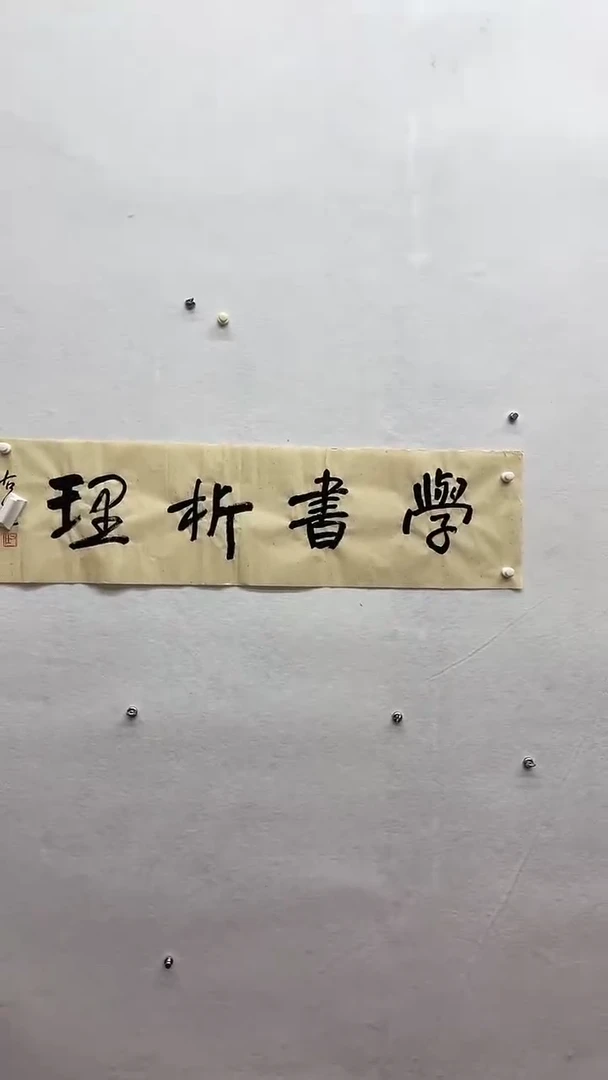 學書析理